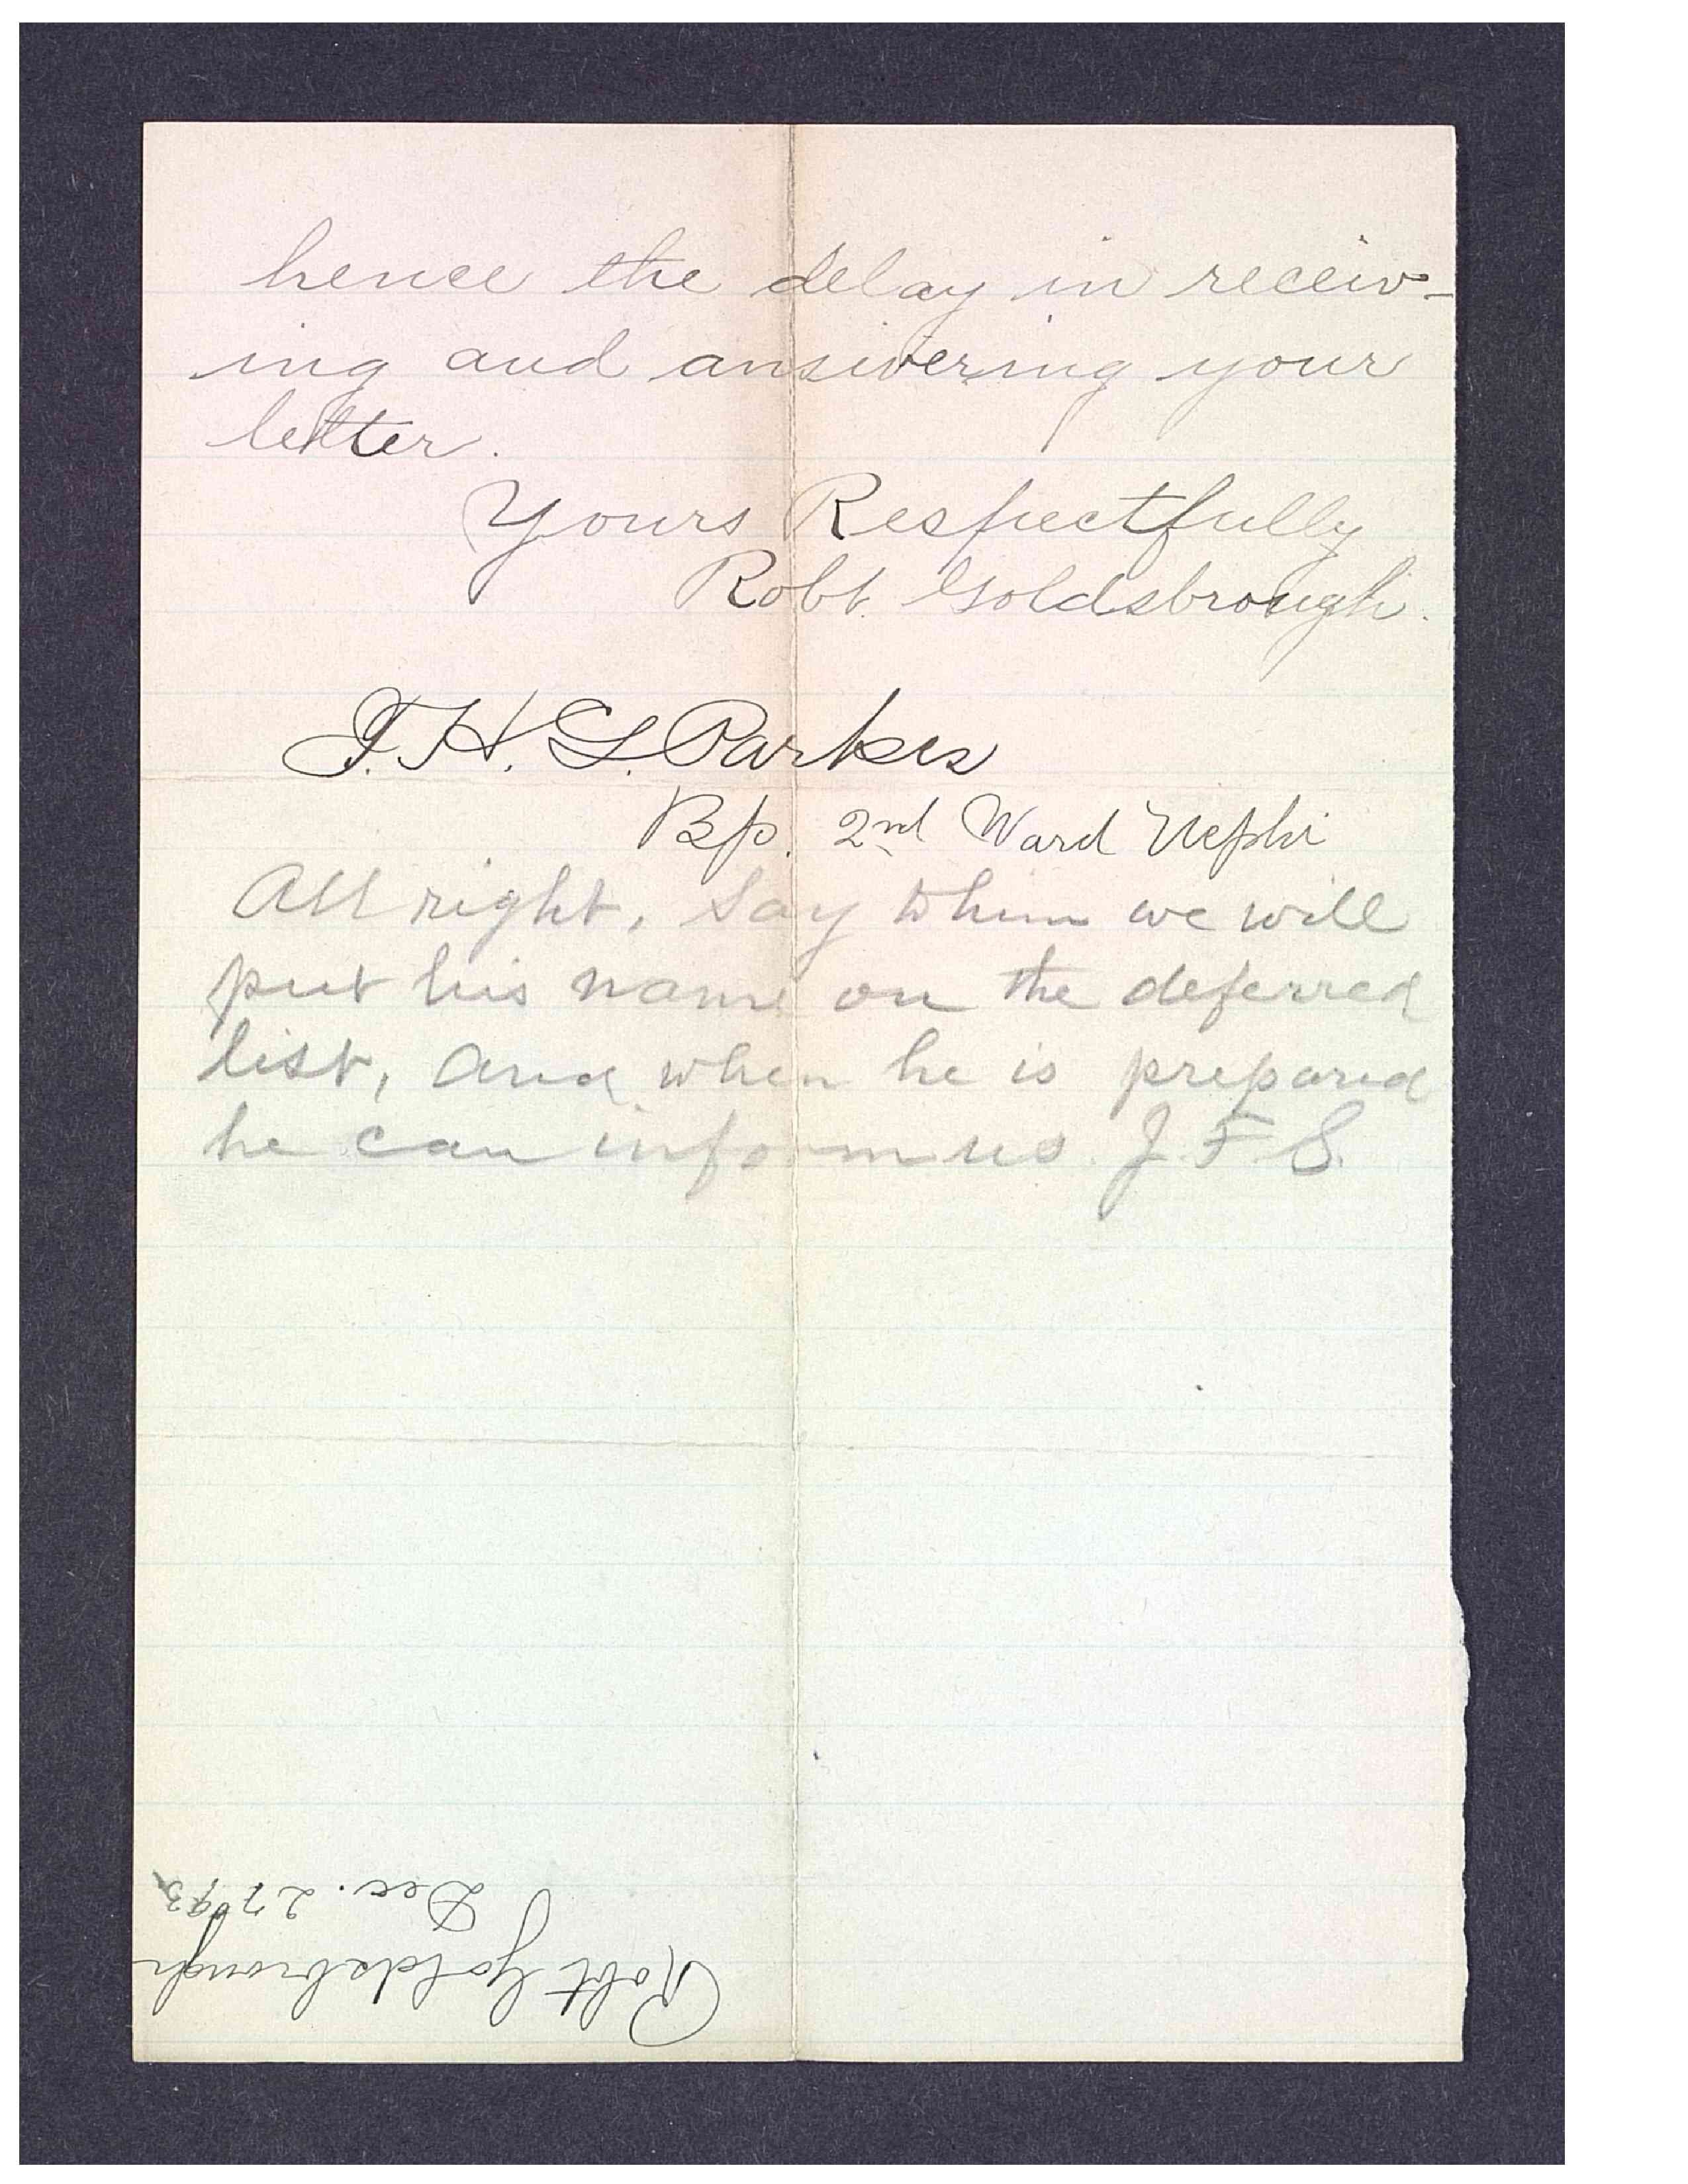 hence the delay in receiv-
ing and answering your
letter.
Yours Respectfully
Robt. Goldsbrough.
J. H. G. Parkes
Bp. 2nd Ward Nephi
All right, Say to him we will
put his name on the deferred
list, and when he is prepared
he can inform us. J. F. S.
Robt Goldsbrough
Dec. 27 93